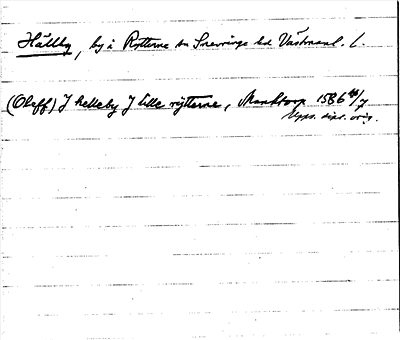 Hällby, by i Rytterne sn Snevringe hd Västmanl. l.
(Oleff) J helleby J lille rytterne, Munktorp 1586 /7
Upps. dipl. orig.